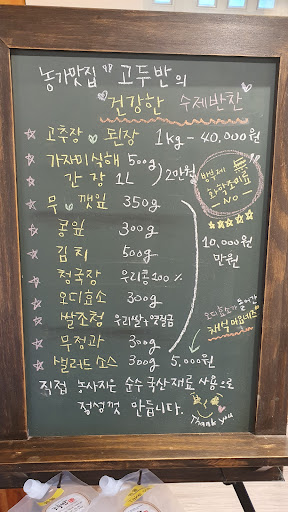 농가맛집 고두반의
건강한 수제반찬
고추장 된장 1kg - 40,000원
가자미식해 500g
간장 1L 2만원
무 깻잎 350g
방부제
화학조미료
NO
콩잎 300g
김치 500g
10,000원
만원
청국장 우리콩100%
오디효소 300g
쌀조청 우리쌀+엿질금
오디효소가 들어간
채식마요네즈
무정과 300g
샐러드소스 300g 5,000원
직접 농사지은 순수국산재료 사용으로
정성껏 만듭니다.
Thank you